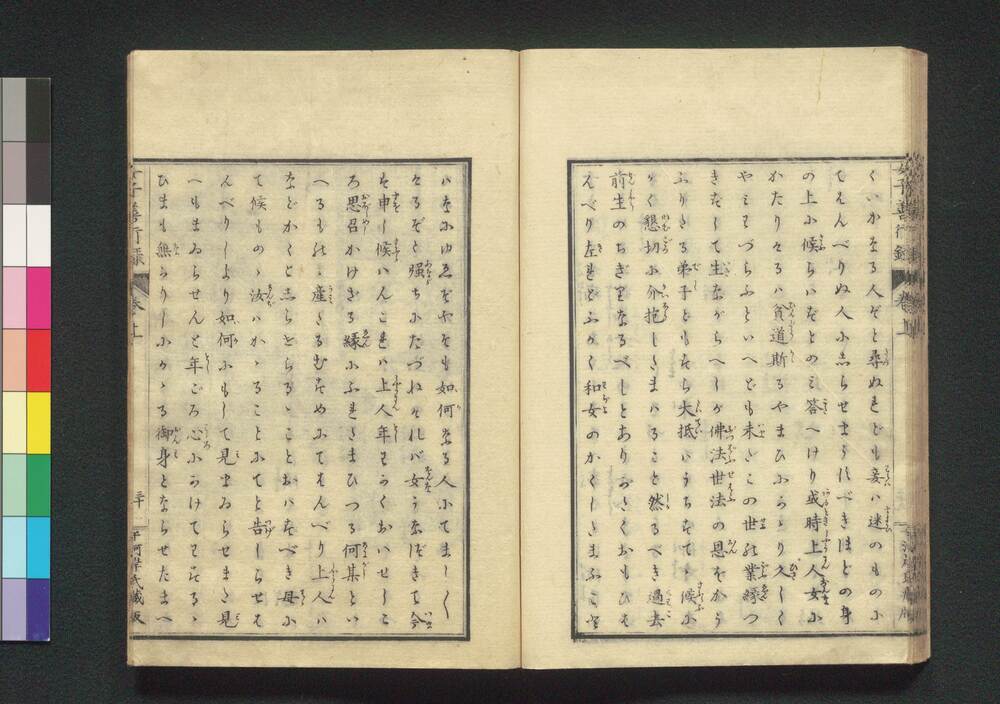 くいかなる人ぞと尋ぬれども妾ハ迷のものに
てはんべりぬ人にしらせまうすべきほどの身
の上に候らハずとのミ答へけり或時上人女に
かたりけるハ貧道斯るやまひにかゝり久しく
やミわづらふといへども未どこの世の業縁つ
きずして生ながらへしが佛法世法の恩をかう
ふりたる弟子どもすら大抵ハうちすてゝ候に
かく懇切に介抱したまハること然るべき過去
前生のちぎりなるべしとありがたくおもひも
えべり左れどふかく和女のかくしたまふこと
ハなにゆゑぞやそも如何なる人にてましく
けるぞと強ちにたづねければ女うなづきて今
を申し候ハんこれハ上人年わかくおハせしこ
ろ思召かけざる縁にふれたまひつる何某とい
へるものゝ産たるむすめにてはんべり上人ハ
などかくとしらせらるゝことおハすべき母に
て候ものゝ汝ハかゝることにてと告しらせは
んべりしより如何にもして見まゐらせまた見
へもまゐらせんと年ごろ心にかけてはべるゝ
ひまも無かりしにかゝる御身とならせたまへ
女子善行録
卷上
二十
平河岸氏藏板